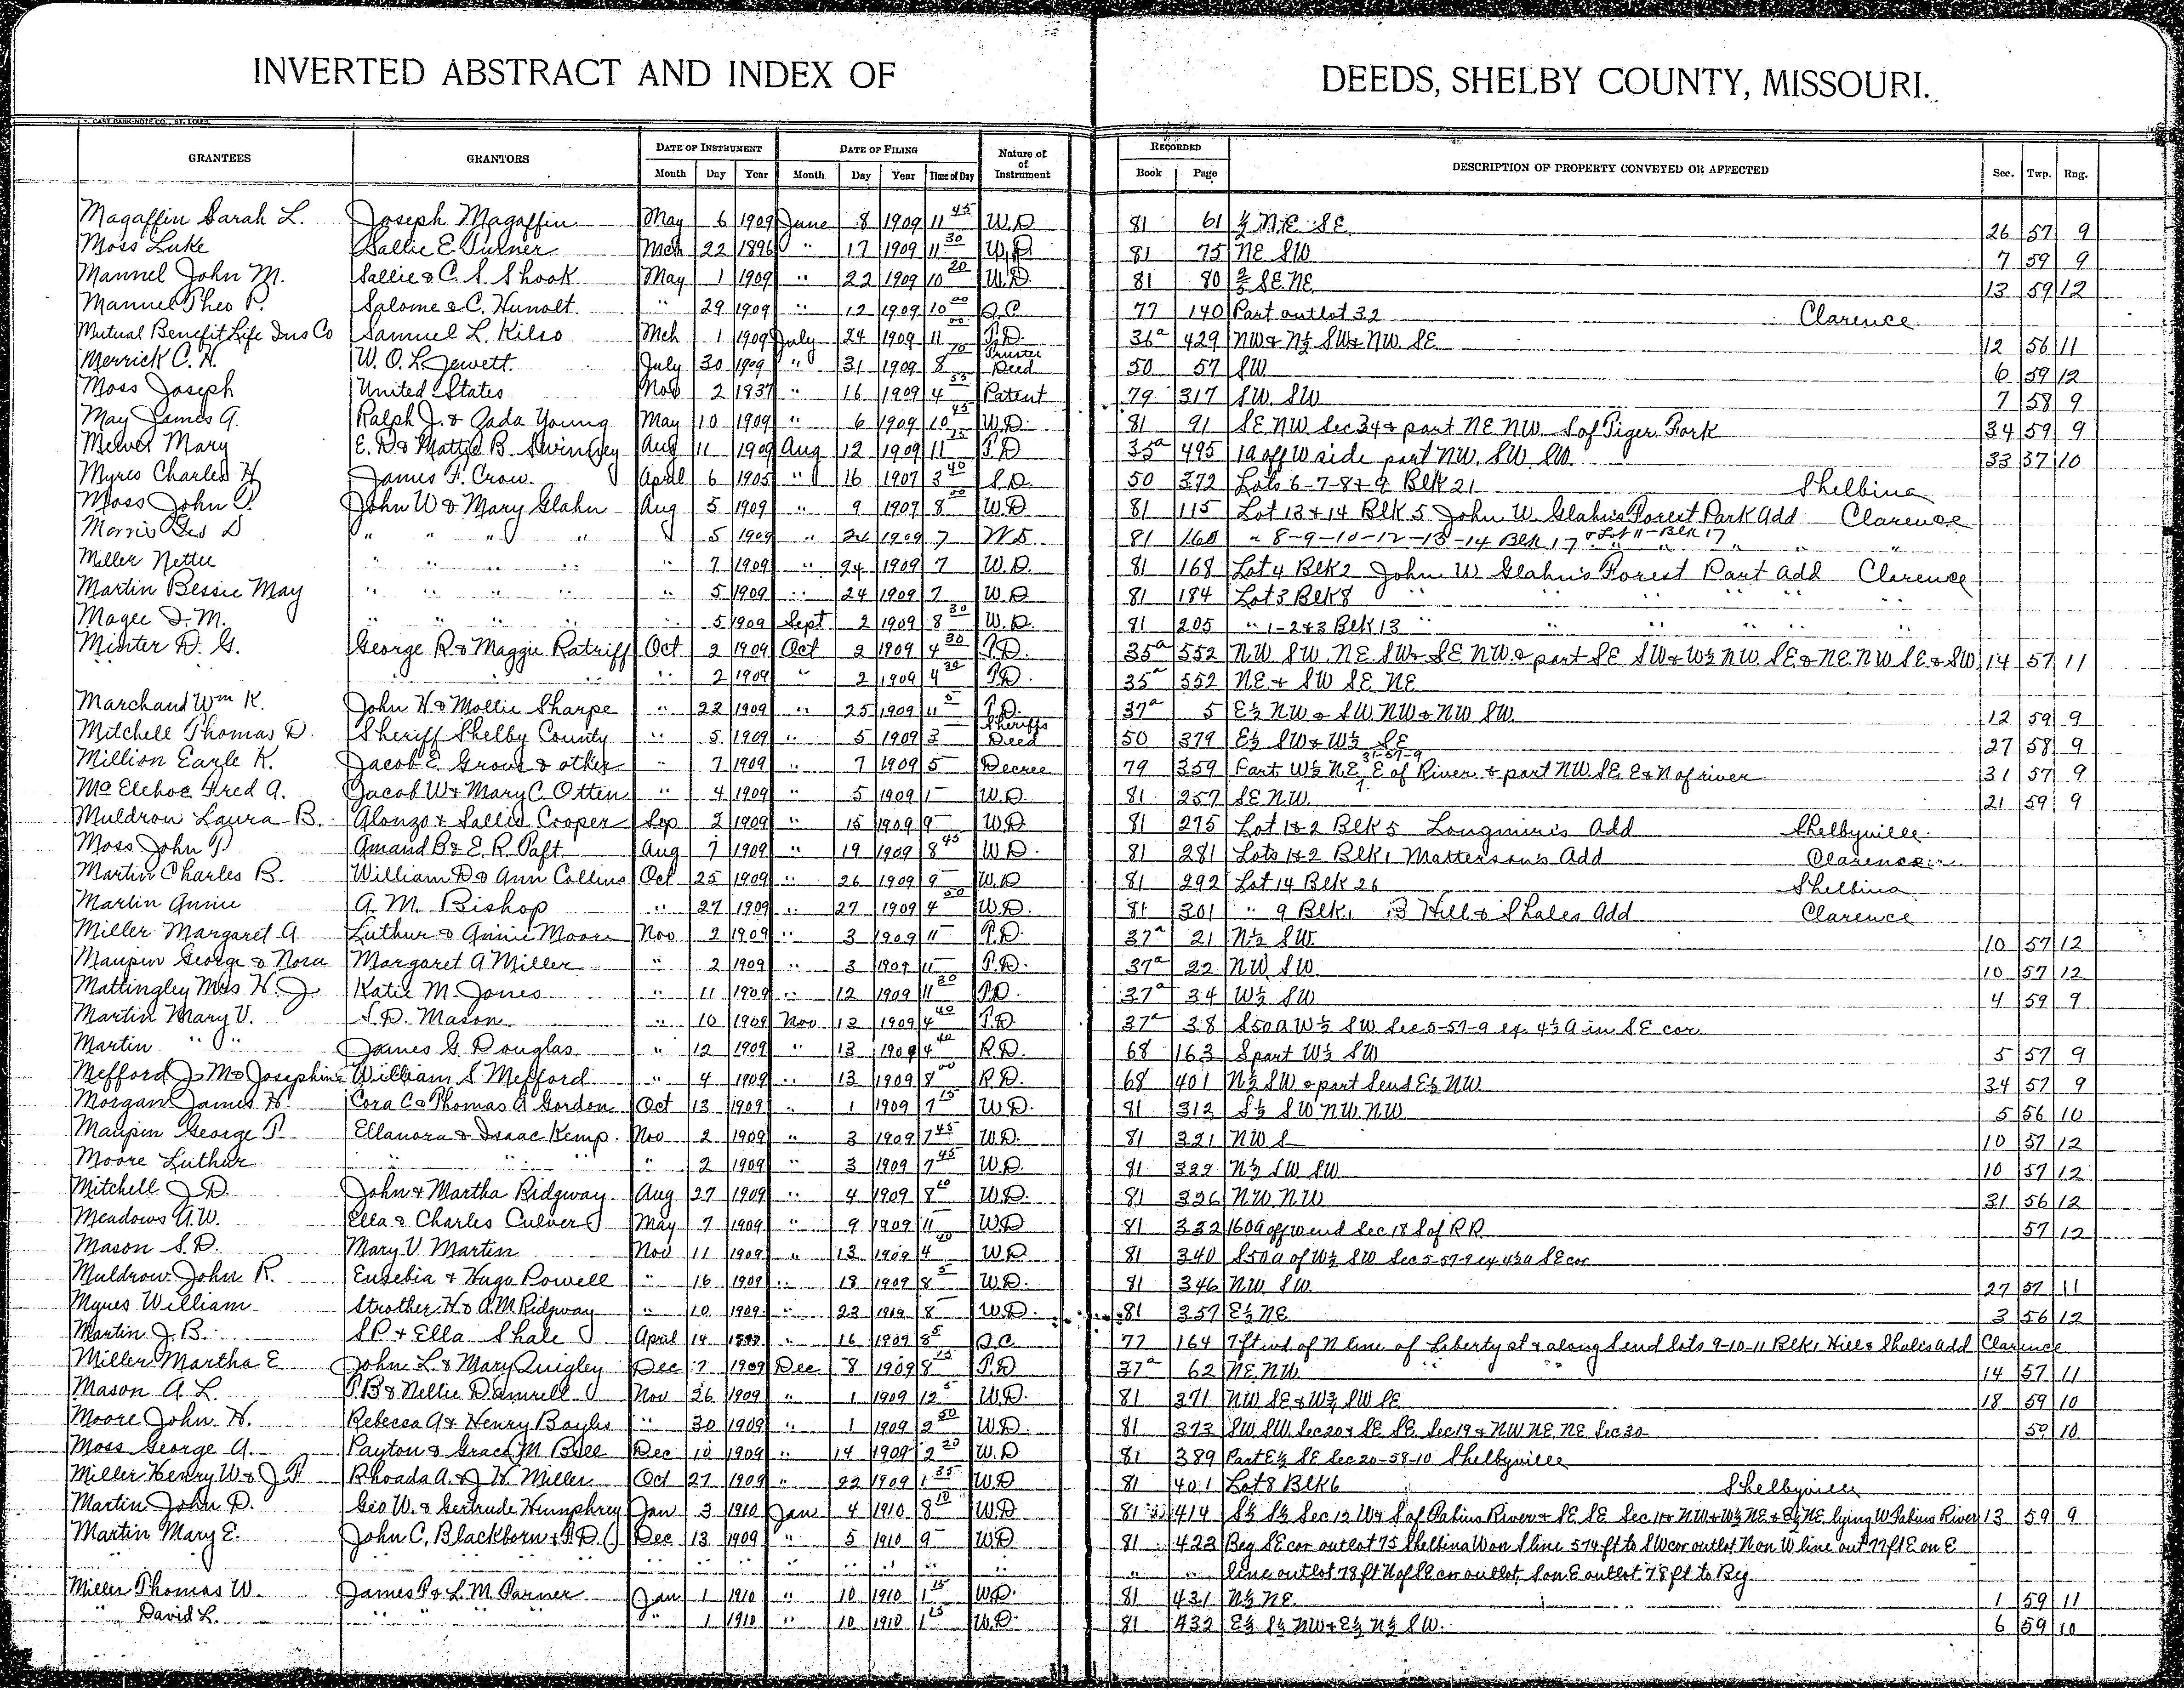 INVERTED ABSTRACT AND INDEX OF DEEDS, SHELBY COUNTY, MISSOURI.
GRANTEES GRANTORS DATE OF INSTRUMENT DATE OF FILING Nature of of Instrument RECORDED DESCRIPTION OF PROPERTY CONVEYED OR AFFECTED Sec. Twp. Rng.
Month Day Year Month Day Year Time of Day Book Page
Magaffin Sarah L. Joseph Magaffin May 6 1909 June 8 1909 11 45 W.D 81 61 ½ N.E. SE 26 57 9
Moss Luke Sallie E. Turner Mch 22 1896 " 17 1909 11 30 W.D 81 75 NE SW 7 59 9
Mannel John M. Sallie & C. S. Shook May 1 1909 " 22 1909 10 20 W.D. 81 80 SE NE 13 59 12
Mannel Theo P. Salome & C. Hunolt " 29 1909 " 12 1909 10 00 Q.C 77 140 Part outlot 32 Clarence
Mutual Benefit Life Ins Co Samuel L. Kilso Mch 1 1909 July 24 1909 11 00 T.D. 36a 429 NW & N½ SW & NW SE 12 56 11
Merrick C. H. W. O. L. Jewett July 30 1909 " 31 1909 8 Trustee Deed 50 57 SW 6 59 12
Moss Joseph United States Nov 2 1837 " 16 1909 4 55 Patent 79 317 SW SW 7 58 9
May James A. Ralph J. & Zada Young May 10 1909 " 6 1909 10 45 W.D. 81 91 SE NW Sec 34 & part NE NW S of Tiger Fork 34 59 9
Mewet Mary E. D & Mattie B. Swingley Aug 11 1909 Aug 12 1909 11 25 T.D 35a 495 1a off W side part NW SW SW 33 57 10
Myres Charles H James F. Crow April 6 1905 " 16 1907 3 40 S.D. 50 372 Lots 6-7-8 & 9 Blk 21 Shelbina
Moss John T. John W & Mary Glahn Aug 5 1909 " 9 1909 8 00 W.D 81 115 Lot 13 & 14 Blk 5 John W. Glahn's Forest Park Add Clarence
Morris Geo D " " " " 5 1909 " 24 1909 7 W.D 81 160 " 8-9-10-12-13-14 Blk 17 & Lot 11-Blk 17 " " "
Miller Nettie " " " " " 7 1909 " 24 1909 7 W.D. 81 168 Lot 4 Blk 2 John W Glahn's Forest Part Add Clarence
Martin Bessie May " " " " " 5 1909 " 24 1909 7 W.D 81 184 Lot 3 Blk 8 " " " "
Magee I. M. " " " " " 5 1909 Sept 2 1909 8 30 W.D. 81 205 " 1-2 & 3 Blk 13 " " " " "
Minter D. G. George R & Maggie Ratriff Oct 2 1909 Oct 2 1909 4 30 T.D. 35a 552 NW SW NE SW & SE NW & part SE SW & W½ NW SE & NE NW SE & SW 14 57 11
" " " " " " 2 1909 " 2 1909 4 30 T.D. 35a 552 NE & SW SE NE
Marchand Wm K. John H. & Mollie Sharpe " 22 1909 " 25 1909 11 5 T.D. 37a 5 E½ NW & SW NW & NW SW 12 59 9
Mitchell Thomas D. Sheriff Shelby County " 5 1909 " 5 1909 3 Sheriffs Deed 50 379 E½ SW & W½ SE 27 58 9
Million Earle K. Jacob E. Grove & other " 7 1909 " 7 1909 5 Decree 79 359 Part W½ NE 31-57-9 E of River & part NW SE E & N of river 31 57 9
Mc Elehoe Fred A. Jacob W & Mary C. Otten " 4 1909 " 5 1909 1 W.D. 81 257 SE NW 21 59 9
Muldrow Laura B. Alonzo & Sallie Cooper Sep 2 1909 " 15 1909 9 W.D. 81 275 Lot 1 & 2 Blk 5 Longmire's Add Shelbyville
Moss John T. Amand B & E. R. Taft Aug 7 1909 " 19 1909 8 45 W.D. 81 281 Lots 1 & 2 Blk 1 Matterson's Add Clarence
Martin Charles B. William D & Ann Collins Oct 25 1909 " 26 1909 9 W.D 81 292 Lot 14 Blk 26 Shelbina
Martin Annie A. M. Bishop " 27 1909 " 27 1909 4 50 W.D. 81 301 " 9 Blk 1 B Hill & Shales Add Clarence
Miller Margaret A Luthur & Annie Moore Nov 2 1909 " 3 1909 11 T.D. 37a 21 N½ SW 10 57 12
Maupin George & Nora Margaret A Miller " 2 1909 " 3 1909 11 T.D. 37a 22 NW SW 10 57 12
Mattingley Mrs H. J. Katie M. Jones " 11 1909 " 12 1909 11 30 T.D. 37a 34 W½ SW 4 59 9
Martin Mary V. S. D. Mason " 10 1909 Nov 13 1909 4 40 T.D. 37a 38 S50a W½ SW Sec 5-57-9 ex 4½ a in SE cor
Martin " " James G. Douglas " 12 1909 " 13 1909 4 40 R.D. 68 163 S part W½ SW 5 57 9
Mefford J. M & Josephine William S Mefford " 4 1909 " 13 1909 8 00 R.D. 68 401 N½ SW & part S end E½ NW 34 57 9
Morgan James H. Cora C & Thomas A Gordon Oct 13 1909 " 1 1909 7 15 W.D. 81 312 S½ SW NW NW 5 56 10
Maupin George T. Ellanora & Isaac Kemp Nov 2 1909 " 3 1909 7 45 W.D. 81 321 NW S 10 57 12
Moore Luthur " " " " 2 1909 " 3 1909 7 45 W.D. 81 322 N½ SW SW 10 57 12
Mitchell J. D. John & Martha Ridgway Aug 27 1909 " 4 1909 8 W.D. 81 326 NW NW 31 56 12
Meadows A. W. Ella & Charles Culver May 7 1909 " 9 1909 11 W.D 81 332 160a off W end Sec 18 S of RR 57 12
Mason S. D. Mary V. Martin Nov 11 1909 " 13 1909 4 40 W.D 81 340 S50a of W½ SW Sec 5-57-9 ex 4½ a SE cor
Muldrow John R. Eusebia & Hugo Powell " 16 1909 " 18 1909 8 5 W.D. 81 346 NW SW 27 57 11
Myres William Strother H & A. M Ridgway " 10 1909 " 23 1909 8 W.D. 81 357 E½ NE 3 56 12
Martin J. B. S P & Ella Shale April 14 " 16 1909 8 5 Q.C 77 164 7 ft wd of N line of Liberty st & along S end lots 9-10-11 Blk 1 Hill & Shales Add Clarence
Miller Martha E John L & Mary Quigley Dec 7 1909 Dec 8 1909 8 15 T.D 37a 62 NE NW 14 57 11
Mason A. L. T. B & Nellie Damrell Nov 26 1909 " 1 1909 12 5 W.D. 81 371 NW SE & W½ SW SE 18 59 10
Moore John H. Rebecca A & Henry Bayles " 30 1909 " 1 1909 2 50 W.D. 81 373 SW SW Sec 20 & SE SE Sec 19 & NW NE NE Sec 30 59 10
Moss George A. Payton & Grace M. Bell Dec 10 1909 " 14 1909 2 20 W.D 81 389 Part E½ SE Sec 20-58-10 Shelbyville
Miller Henry W & J. F. Rhoada A. & J. H. Miller Oct 27 1909 " 22 1909 1 35 W.D 81 401 Lot 8 Blk 6 Shelbyville
Martin John D. Geo W. & Gertrude Humphrey Jan 3 1910 Jan 4 1910 8 10 W.D 81 414 S½ S½ Sec 12 W & S of Fabius River & SE SE Sec & NW & W½ NE & E½ NE lying W Fabius River 13 59 9
Martin Mary E. John C. Blackborn & Dec 13 1909 " 5 1910 9 W.D 81 423 Beg SE cor outlot 75 Shelbina W on S line 574 ft to SW cor outlot N on W line out 77 ft E on E
" " " line outlot 78 ft N of SE cor outlot S on E outlot 78 ft to Beg
Miller Thomas W. James P & L. M. Parner Jan 1 1910 " 10 1910 1 15 W.D. 81 431 N½ NE 1 59 11
" David L. " " " " " 1 1910 " 10 1910 1 15 W.D. 81 432 E½ S½ NW & E½ N½ SW 6 59 10